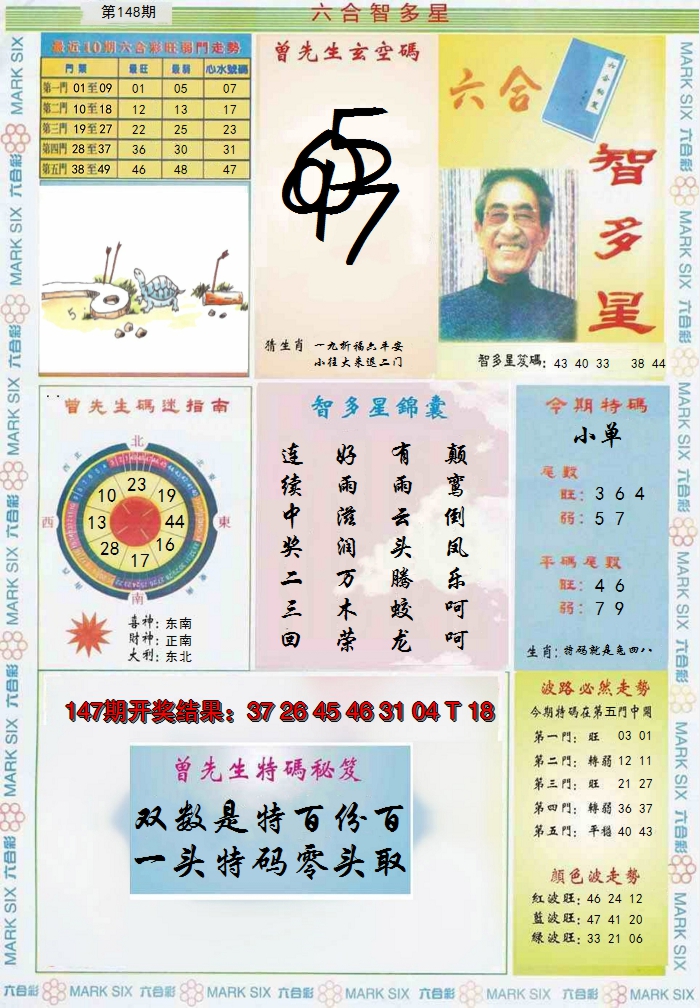 第148期
六合智多星
最近10期六合彩旺弱門走勢
門類 最旺 最弱 心水號碼
第一門 01至09 01 05 07
第二門 10至18 12 13 17
第三門 19至27 22 25 23
第四門 28至37 36 30 31
第五門 38至49 46 48 47
曾先生玄空碼
猜生肖 一九祈福六平安
小往大来退二门
六合
智多星
智多星笈碼: 43 40 33 38 44
曾先生碼迷指南
北
西
東
南
23
19
44
16
17
28
13
10
喜神: 东南
财神: 正南
大利: 东北
智多星錦囊
颠鸾倒凤乐呵呵
有雨云头腾蛟龙
好雨滋润万木荣
连续中奖二三回
今期特碼
小单
尾數
旺: 3 6 4
弱: 5 7
平碼尾數
旺: 4 6
弱: 7 9
生肖: 特码就是兔四八
147期开奖结果: 37 26 45 46 31 04 T 18
曾先生特碼秘笈
双数是特百份百
一头特码零头取
波路必然走勢
今期特碼在第五門中開
第一門: 旺 03 01
第二門: 轉弱 12 11
第三門: 旺 21 27
第四門: 轉弱 36 37
第五門: 平穩 40 43
顏色波走勢
紅波旺: 46 24 12
藍波旺: 47 41 20
綠波旺: 33 21 06
六合彩 MARK SIX 六合彩 MARK SIX 六合彩 MARK SIX 六合彩 MARK SIX 六合彩 MARK SIX